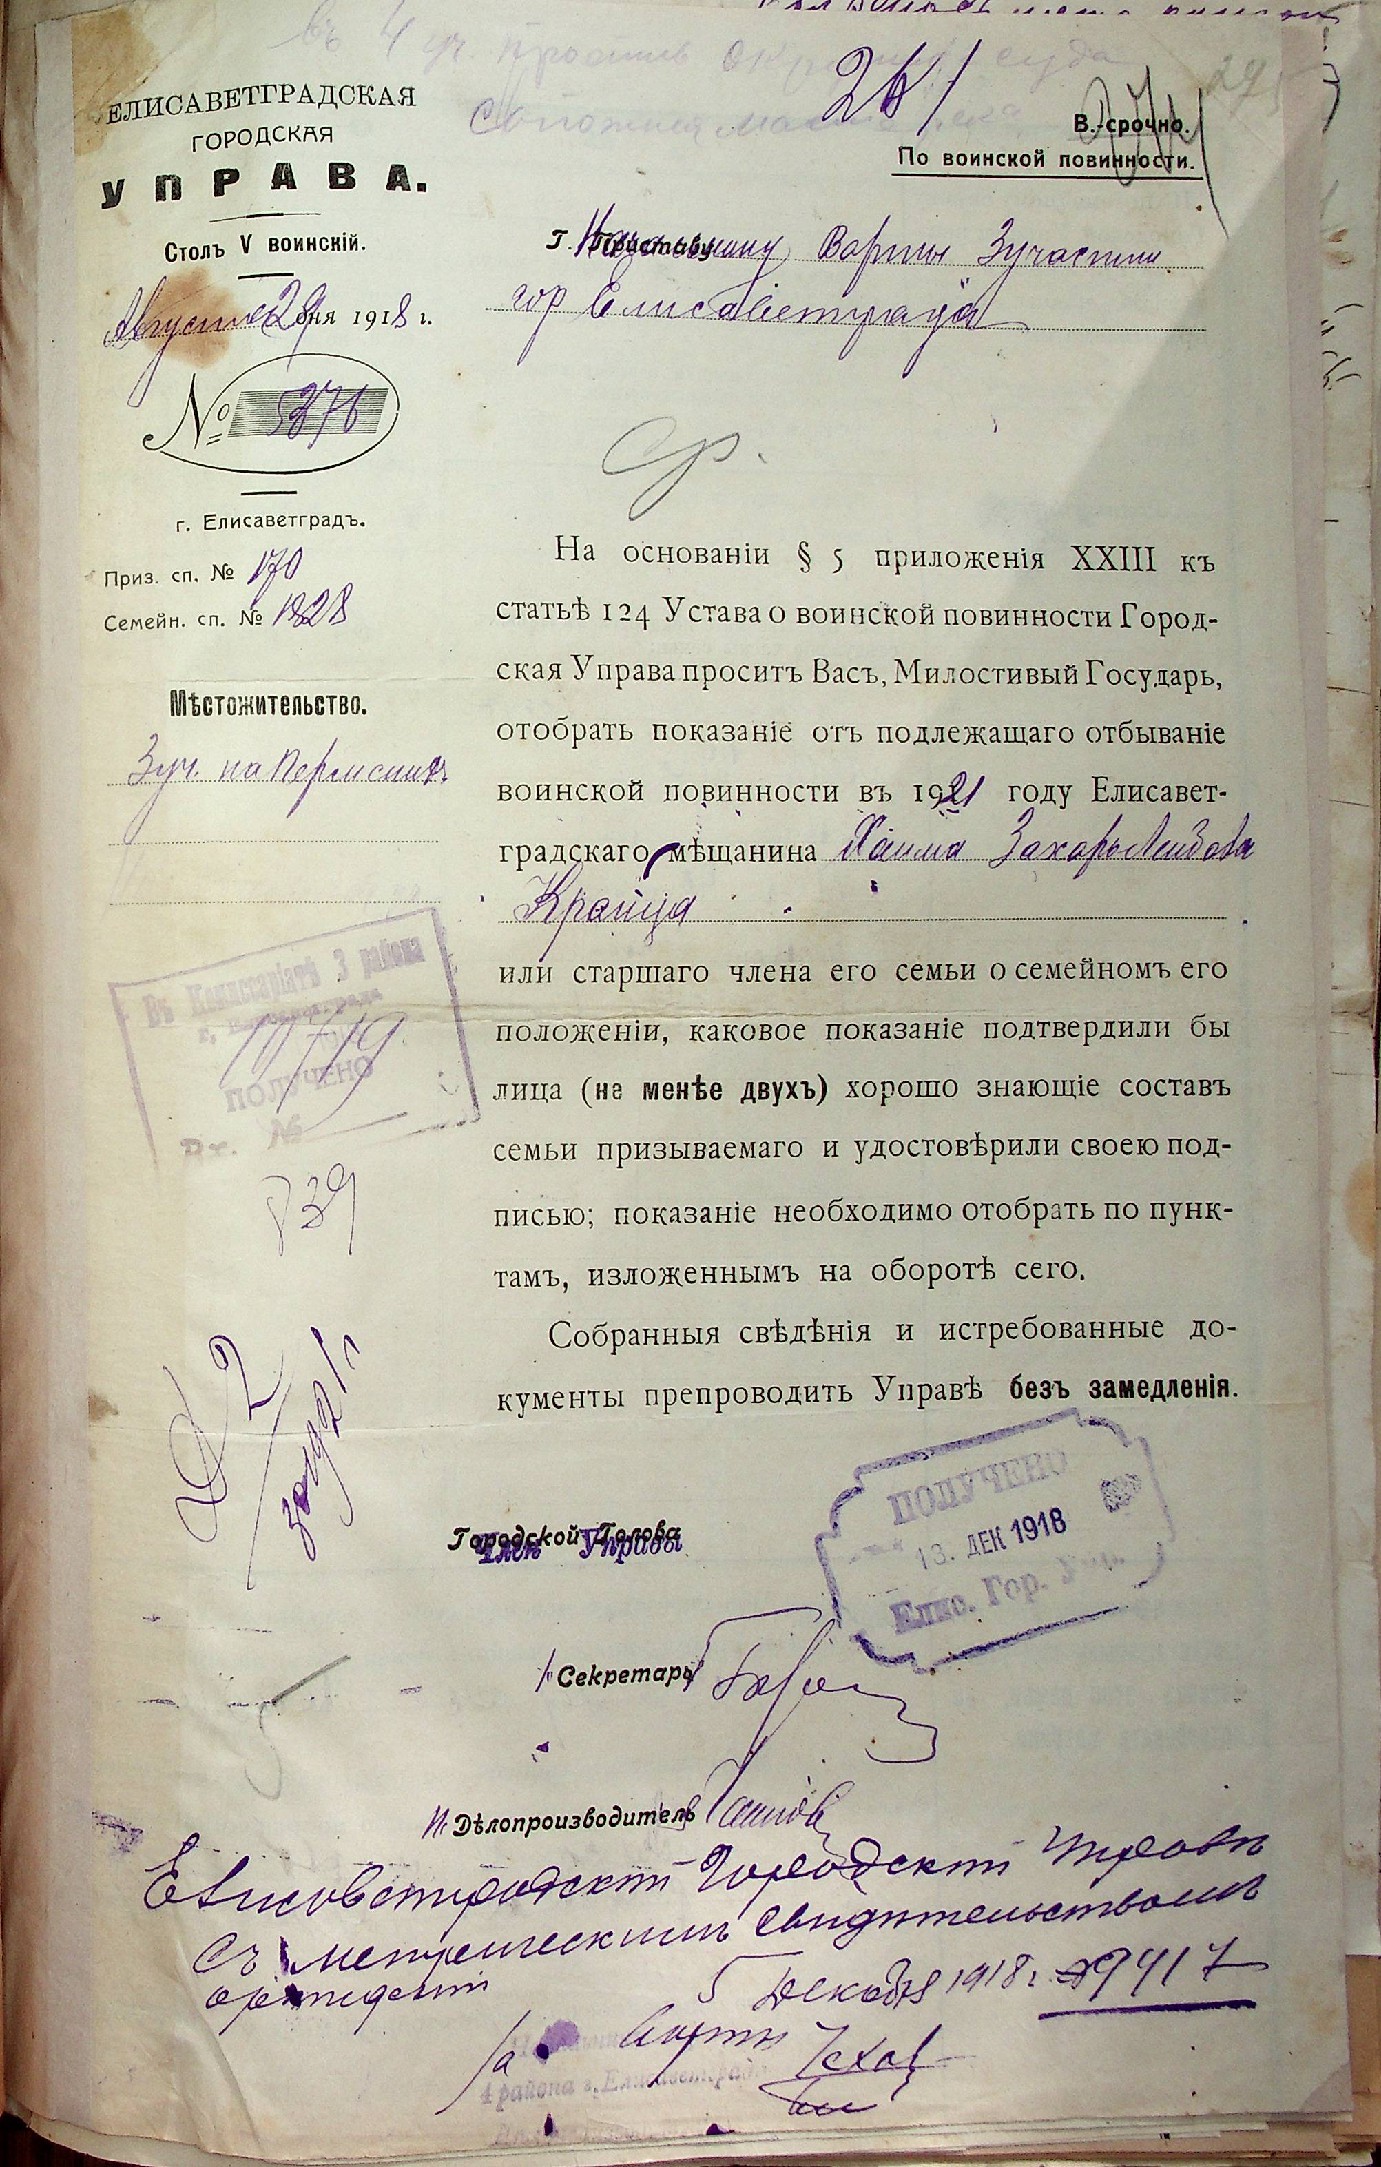 въ 4 уч. против окр суда
261
ЕЛИСАВЕТГРАДСКАЯ
ГОРОДСКАЯ
УПРАВА.
Столъ V воинскій.
Августа 29 дня 1918 г.
№ 5376
г. Елисаветградъ.
Приз. сп. № 170
Семейн. сп. № 1828
Мѣстожительство.
3 уч. на
В.-срочно.
По воинской повинности.
Г. Приставу Начальнику Варты 3 участка
гор Елисаветграда
Ср.
На основаніи § 5 приложенія XXIII къ
статьѣ 124 Устава о воинской повинности Город-
ская Управа проситъ Васъ, Милостивый Государь,
отобрать показаніе отъ подлежащаго отбыванію
воинской повинности въ 1921 году Елисавет-
градскаго мѣщанина Хаима Захарь Лейбова
Крайца
или старшаго члена его семьи о семейномъ его
положеніи, каковое показаніе подтвердили бы
лица (не менѣе двухъ) хорошо знающіе составъ
семьи призываемаго и удостовѣрили своею под-
писью; показаніе необходимо отобрать по пунк-
тамъ, изложеннымъ на оборотѣ сего.
Собранныя свѣдѣнія и истребованные до-
кументы препроводить Управѣ безъ замедленія.
Въ Комиссаріатѣ 3 района
г. Елисаветграда
ПОЛУЧЕНО
Вх. №
839
Городской Голова
Член Управы
ПОЛУЧЕНО
13. ДЕК 1918
Елис. Гор. Упр.
Секретарь
И. Дѣлопроизводитель
Елисаветградской Городской Управѣ
съ метрическимъ свидѣтельствомъ
5 Декабря 1918 г. 9417
4 района г. Елисаветграда